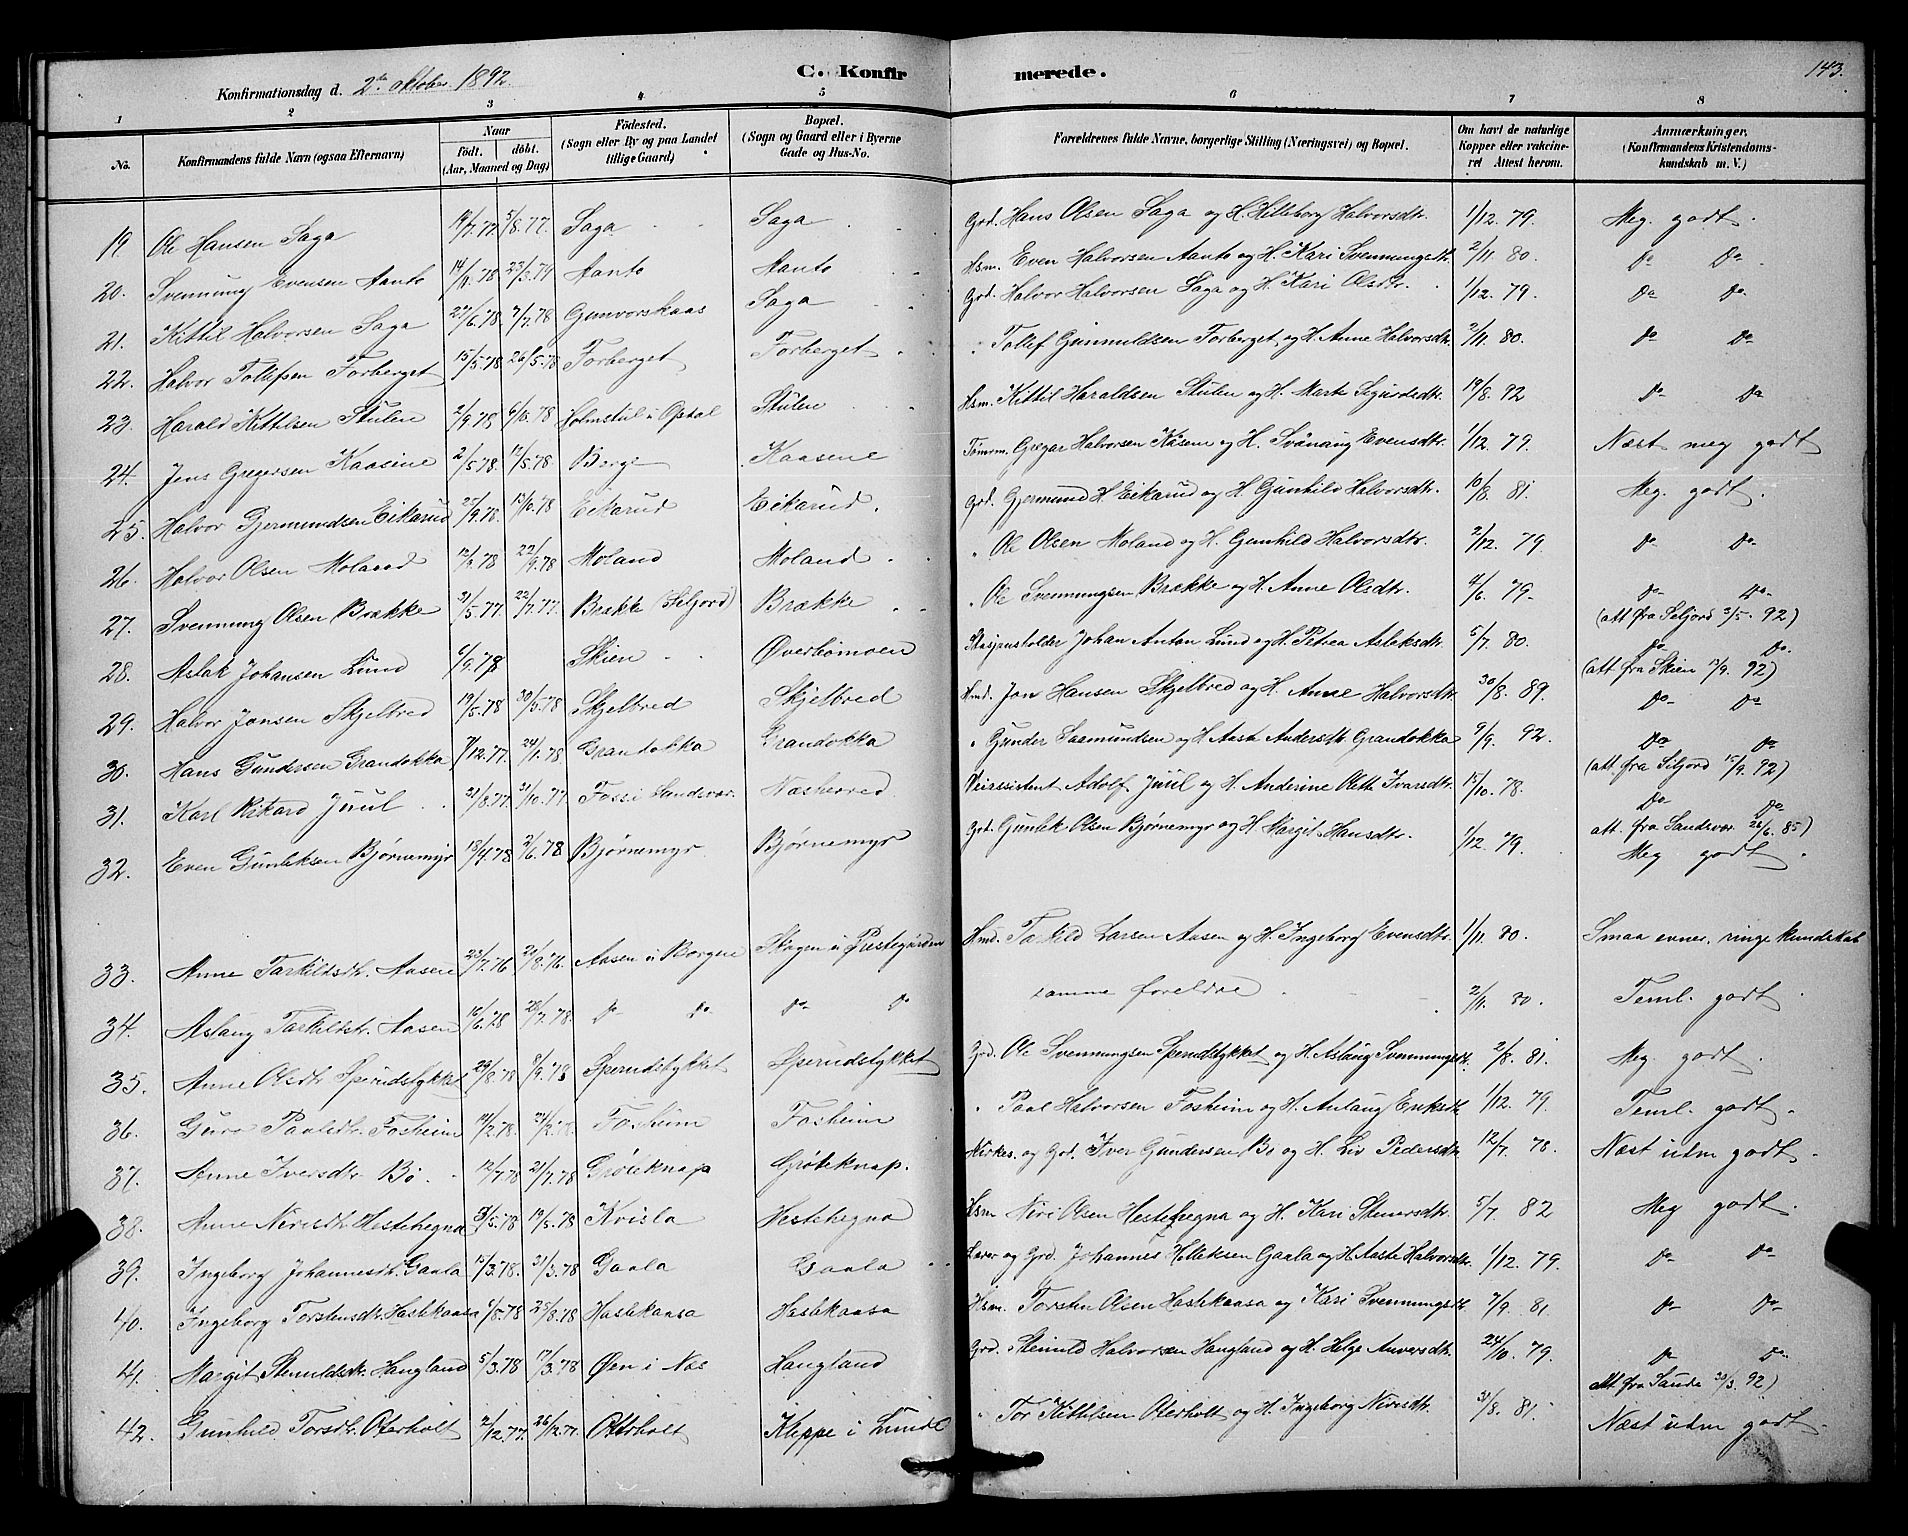 C. Konfirmerede.
143.
Konfirmationsdag d. 2den Oktober 1892.
1 2 3 4 5 6 7 8
No. Konfirmandens fulde Navn (ogsaa Efternavn) Naar födt. döbt. (Aar, Maaned og Dag) Födested. (Sogn eller By og paa Landet tillige Gaard) Bopæl. (Sogn og Gaard eller i Byerne Gade og Hus-No. Forældrenes fulde Navne, borgerlige Stilling (Næringsvei) og Bopæl. Om havt de naturlige Kopper eller vakcineret Attest herom. Anmærkninger. (Konfirmandens Kristendomskundskab m. V.)
19. Ole Hansen Saga 19/7.77 5/8.77. Saga Saga Grd. Hans Olsen Saga og H. Hilleborg Halvorsdtr. 1/12.79. Meg. godt.
20. Svennung Evensen Aanto 23/3.79 Aanto Aanto Hsm. Even Halvorsen Aanto og H. Kari Svennungsdtr. 2/11.80. Do Do
21. Kittil Halvorsen Saga 22/6.78 7/7.78 Gunvorskaas Saga Grd. Halvor Halvorsen Saga og H. Kari Olsdtr. 1/12.79 Do Do
22. Halvor Tollefsen Forberget 15/5.78 26/5.78 Forberget Forberget " Tollef Gunnuldsen Forberget og H. Anne Halvorsdtr. 2/11.80. Do Do
23. Harald Kittilsen Stulen 2/9.78 6/10.78 Holmstul i Opdal Stulen Hsm. Kittil Haraldsen Stulen og H. Marte Sigurdsdtr. 19/8.92 Do Do
24. Jens Gregersen Kaasine 2/5.78. 12/5.78 Borge Kaasene Tömrm. Gregar Halvorsen Kåsene og H. Svånaug Evensdtr. 1/12.79. Næst meg godt
25. Halvor Gjermundsen Eikarud 25/9.78. 13/10.78 Eikarud Eikarud. Grd. Gjermund H. Eikarud og H. Gunhild Halvorsdtr. 10/8.81. Meg. godt.
26. Halvor Olsen Moland 22/9.78 Moland Moland " Ole Olsen Moland og H. Gunhild Halvorsdtr. 2/12.79. Do Do
27. Svennung Olsen Brække 31/5.77. 22/7.77. Brække (Seljord) Brække " Ole Svennungsen Brække og H. Anne Olsdtr. 4/6.79. Do Do
(att fra Seljord 2/5.92)
28. Aslak Johansen Lund 6/9.78 Skien Øverbömoen Johan Anton Lund og H. Petrea Asleksdtr. 5/7.80. Do Do.
(att. fra Skien 12/9.92)
29. Halvor Jonsen Skjelbred 19/5.78 30/5.78 Skjelbred Skjelbred Hmd. Jon Hansen Skjelbred og H. Anne Halvorsdtr. 30/8.89. Do Do
30. Hans Gundersen Grandokka 7/12.77. 20/1.78 Grandokka Grandokka " Gunder Saamundsen og H. Aaste Andersdtr. Grandokka 9/9.92. Do Do
(att. fra Seljord 15/9.92)
31. Karl Rikard Juul 21/8.77. 21/10.77 Fossi Sandsvær. Næsherred Veiassistent Adolf Juul og H. Anderine Olette Ivarsdtr. 15/10.78. Do Do
att. fra Sandsvær. 26/6.85)
32. Even Gunleksen Bjørnemyr 13/4.78 2/6.78 Bjørnemyr. Bjørnemyr Grd. Gunlek Olsen Bjørnemyr og H. Margit Hansdtr. 1/12.79. Meg godt.
33. Anne Tarkildsdtr. Aasene 23/7.76 20/8.76. Aasen i Borgen Skogen i Prestegården Hmd. Tarkild Larsen Aasen og H. Ingeborg Evensdtr. 1/11.80. Smaa evner, ringe kundskab
34. Aslaug Tarkildsdtr. Aasen 16/6.78 28/7.78. Do Do Do Do samme foreldre 2/11.80. Teml. godt.
35. Anne Olsdtr. Sperudstykket 24/8.78 8/9.78 Sperudstykket Sperudstykket Grd. Ole Svennungsen Sperudstykket og H. Aslaug Svennungsdtr. 2/8.81. Meg. godt.
36. Guro Paalsdtr. Fosheim Fosheim Fosheim " Paal Halvorsen Fosheim og H. Anlaug Eriksdtr. 1/12.79. Teml. godt.
37. Anne Iversdtr. Bö. 12/7.78 21/7.78 Gröteknap Gröteknap. Kirkes. og Grd. Iver Gundersen Bö og H. Liv Pedersdtr. 12/7.78. Næst udm godt.
38. Anne Nirisdtr. Hestehegna 3/5.78 19/5.78 Kvisla Hestehegna Hsm Niri Olsen Hestehegna og H. Kari Stenersdtr. 5/7.82 Meg godt.
39. Ingeborg Johannesdtr. Gaala 15/3.78. 31/3.78 Gaala Gaala Lærer og Grd. Johannes Helleksen Gaala og H. Aaste Halvorsdtr. 1/12.79. Do Do
40. Ingeborg Torstensdtr. Hastekaasa 6/8.78 25/8.78 Hastekaasa Hastekaasa Hsm. Torsten Olsen Hastekaasa og Kari Svennungsdtr. 7/9.81. Do Do
41. Margit Stenuldsdtr. Haugland 5/3.78 17/3.78 Øen i Næs Haugland Grd. Steinuld Halvorsen Haugland og H. Helge Anversdtr. 24/10.79. Do Do
att. fra Saude 30/3.92)
42. Gunhild Torsdtr. Oterholt 2/12.77. 26/12.77. Oterholt Kleppe i Lunde " Tor Kittilsen Oterholt og H. Ingeborg Nirisdtr. 31/8.81. Næst udm godt.